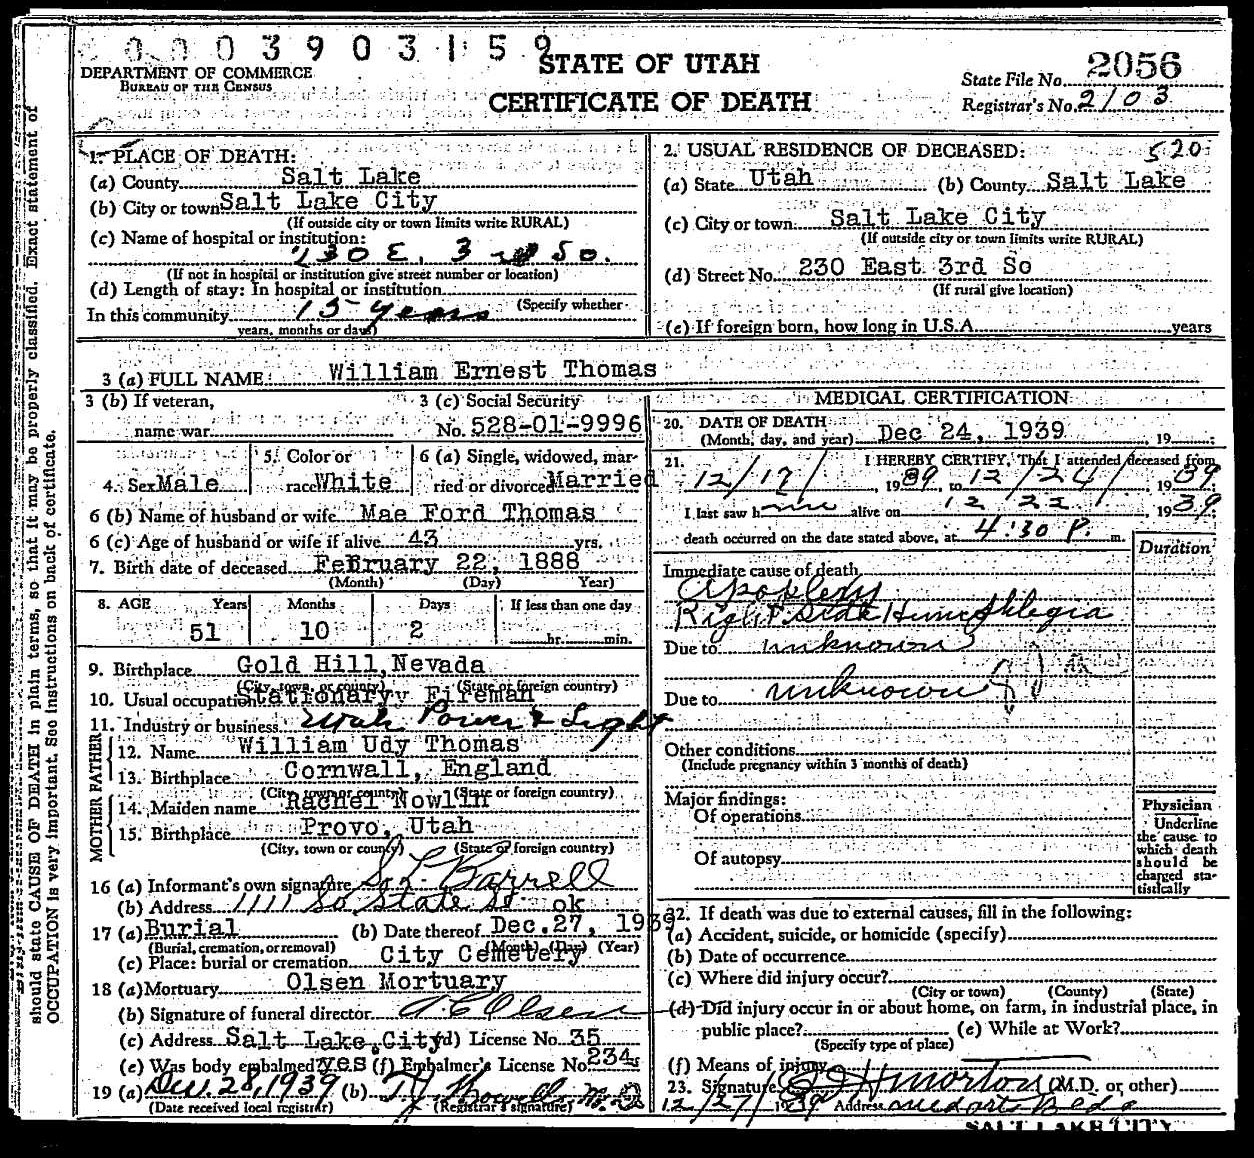 0003903159
STATE OF UTAH
CERTIFICATE OF DEATH
DEPARTMENT OF COMMERCE
BUREAU OF THE CENSUS
State File No. 2056
Registrar's No. 2103
1. PLACE OF DEATH:
(a) County Salt Lake
(b) City or town Salt Lake City
(If outside city or town limits write RURAL)
(c) Name of hospital or institution:
230 E. 3 So.
(If not in hospital or institution give street number or location)
(d) Length of stay: In hospital or institution
(Specify whether
In this community 15 years
years, months or days)
2. USUAL RESIDENCE OF DECEASED: 520
(a) State Utah (b) County Salt Lake
(c) City or town Salt Lake City
(If outside city or town limits write RURAL)
(d) Street No. 230 East 3rd So
(If rural give location)
(e) If foreign born, how long in U.S.A. years
3 (a) FULL NAME: William Ernest Thomas
3 (b) If veteran,
name war
3 (c) Social Security
No. 528-01-9996
4. Sex Male
5. Color or
race White
6 (a) Single, widowed, mar-
ried or divorced Married
6 (b) Name of husband or wife Mae Ford Thomas
6 (c) Age of husband or wife if alive 43 yrs.
7. Birth date of deceased February 22, 1888
(Month) (Day) Year)
8. AGE Years Months Days If less than one day
51 10 2 hr. min.
9. Birthplace Gold Hill, Nevada
(City, town, or county) (State or foreign country)
10. Usual occupation Stationary Fireman
11. Industry or business Utah Power & Light
FATHER
12. Name William Udy Thomas
13. Birthplace Cornwall, England
(City, town or county) (State or foreign country)
MOTHER
14. Maiden name Rachel Nowlin
15. Birthplace Provo, Utah
(City, town or county) (State or foreign country)
16 (a) Informant's own signature Barrell
(b) Address 1111 So State St. ok
17 (a) Burial (b) Date thereof Dec. 27, 1939
(Burial, cremation, or removal) (Month) (Day) (Year)
(c) Place: burial or cremation City Cemetery
18 (a) Mortuary Olsen Mortuary
(b) Signature of funeral director Olsen
(c) Address Salt Lake City (d) License No. 35
(e) Was body embalmed? yes (f) Embalmer's License No. 234
19 (a) Dec. 28, 1939 (b)
(Date received local registrar) (Registrar's signature)
MEDICAL CERTIFICATION
20. DATE OF DEATH
(Month, day, and year) Dec 24, 1939, 19
21. I HEREBY CERTIFY, That I attended deceased from
12/17/, 1939, to 12/24/ 1939.
I last saw h alive on 12 22 1939
death occurred on the date stated above, at 4:30 P. m.
Duration
Immediate cause of death
Apoplexy
Right Side Hemiphlegia
Due to unknown
Due to unknown
Other conditions
(Include pregnancy within 3 months of death)
Major findings:
Of operations
Of autopsy
Physician
Underline
the cause to
which death
should be
charged sta-
tistically
22. If death was due to external causes, fill in the following:
(a) Accident, suicide, or homicide (specify)
(b) Date of occurrence
(c) Where did injury occur?
(City or town) (County) (State)
(d) Did injury occur in or about home, on farm, in industrial place, in
public place? (e) While at Work?
(Specify type of place)
(f) Means of injury
23. Signature Morton (M.D. or other)
12/27/1939 Address Med arts Bldg
SALT LAKE CITY
should state CAUSE OF DEATH in plain terms, so that it may be properly classified. Exact statement of
OCCUPATION is very important. See instructions on back of certificate.